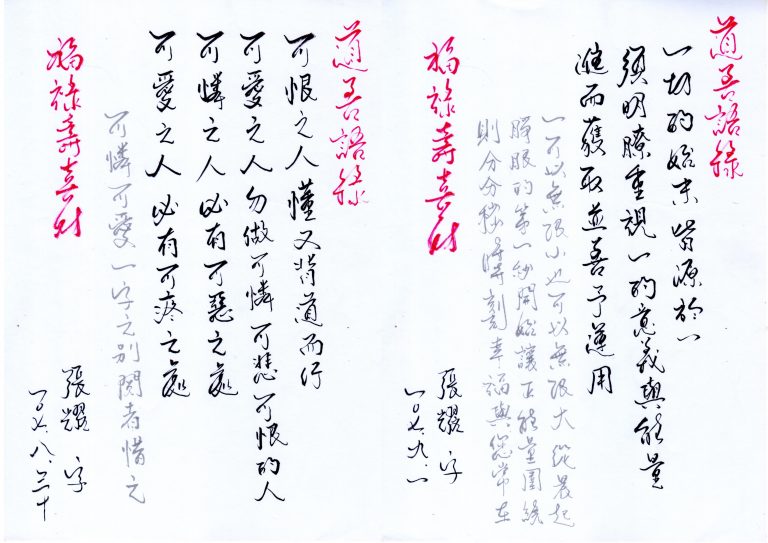 道善語錄
一切的始末皆源於一
須明瞭重視一的意義與能量
進而獲取並善予運用
一可以無限小也可以無限大從晨起
睜眼的第一秒開始讓正能量圍繞
則分分秒秒時時刻刻幸福與您常在
張耀 字
一0七.九.一
福祿壽喜財
道善語錄
可恨之人懂又背道而行
可愛之人勿做可憐可悲可恨的人
可憐之人必有可惡之處
可愛之人必有可疼之處
可憐可愛一字之別閱者惜之
張耀 字
一0七.八.三十
福祿壽喜財